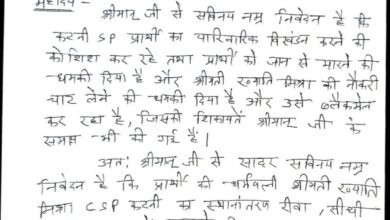 महोदय -
श्रीमान् जी से सविनय नम्र निवेदन है कि
कटनी SP प्रार्थी का पारिवारिक विखंडन करने की
कोशिश कर रहे तथा प्रार्थी को जान से मारने की
धमकी दिया है और श्रीमती ख्याति मिश्रा की नौकरी
चाट लेने की धमकी दिया है और उसे ब्लैकमेल
कर रहा है, जिसकी शिकायतें श्रीमान् जी के
समक्ष भी की गई हैं।
अतः श्रीमान् जी से सादर सविनय नम्र
निवेदन है कि प्रार्थी की धर्मपत्नी श्रीमती ख्याति
मिश्रा CSP कटनी का स्थानांतरण रीवा, सीधी